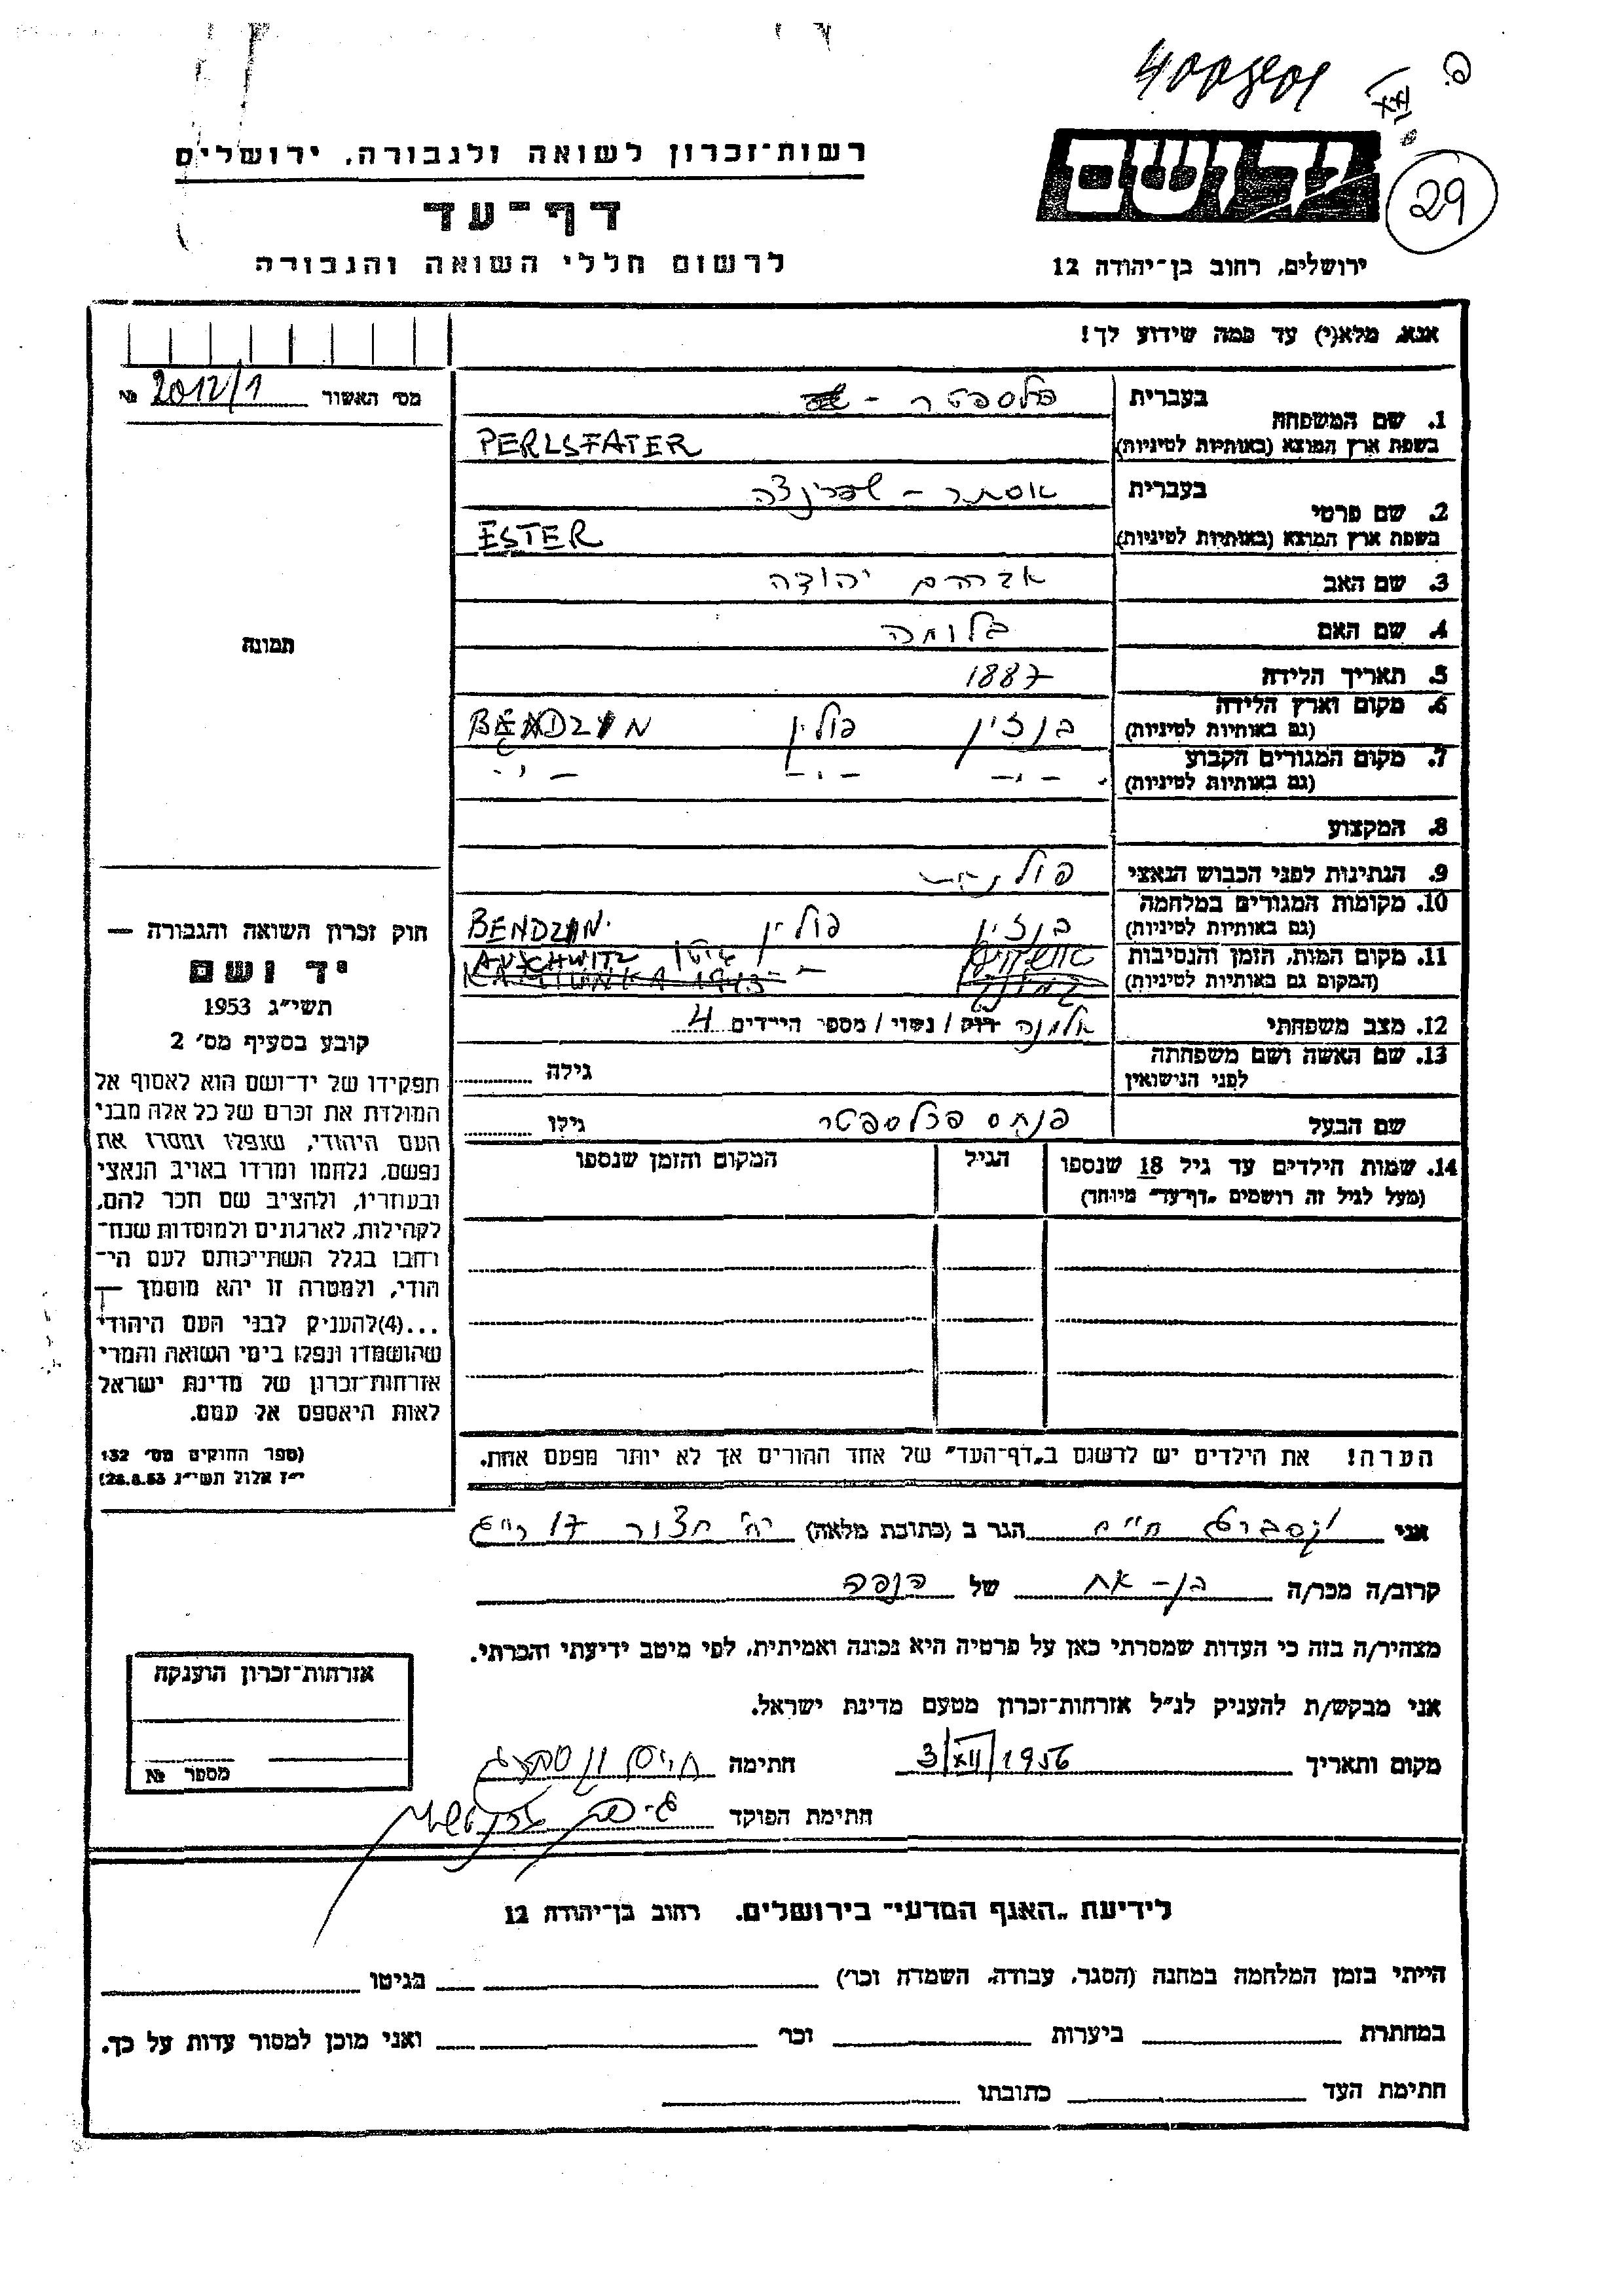 רשות־זכרון לשואה ולגבורה, ירושלים
דף־עד
לרשום חללי השואה והגבורה
יד ושם
29
ירושלים, רחוב בן־יהודה 12
אנא, מלא(י) עד כמה שידוע לך!
מס׳ האשור 2012/1 №
תמונה
1. שם המשפחה
בעברית פרלספטר -
בשפת ארץ המוצא (באותיות לטיניות) PERLSFATER
2. שם פרטי
בעברית אסתר - שפרינצה
בשפת ארץ המוצא (באותיות לטיניות) ESTER
3. שם האב אברהם יהודה
4. שם האם בלומה
5. תאריך הלידה 1887
6. מקום וארץ הלידה (גם באותיות לטיניות) בנדזין פולין BENDZIN
7. מקום המגורים הקבוע (גם באותיות לטיניות) -׳׳- -׳׳- -׳׳-
8. המקצוע
9. הנתינות לפני הכבוש הנאצי פולנית
10. מקומות המגורים במלחמה (גם באותיות לטיניות) בנדזין פולין BENDZIN.
11. מקום המות, הזמן והנסיבות (המקום גם באותיות לטיניות) AUSCHWITZ
12. מצב משפחתי אלמנה רוק / נשוי / מספר הילדים 4
13. שם האשה ושם משפחתה לפני הנישואין גילה
שם הבעל פנחס פרלספטר גילו
14. שמות הילדים עד גיל 18 שנספו (מעל לגיל זה רושמים „דף־עד״ מיוחד)
הגיל
המקום והזמן שנספו
הערה! את הילדים יש לרשום ב„דף־העד״ של אחד ההורים אך לא יותר מפעם אחת.
חוק זכרון השואה והגבורה —
יד ושם
תשי״ג 1953
קובע בסעיף מס׳ 2
תפקידו של יד־ושם הוא לאסוף אל
המולדת את זכרם של כל אלה מבני
העם היהודי, שנפלו ומסרו את
נפשם, נלחמו ומרדו באויב הנאצי
ובעוזריו, ולהציב שם וזכר להם,
לקהילות, לארגונים ולמוסדות שנח־
רבו בגלל השתייכותם לעם הי־
הודי, ולמטרה זו יהא מוסמך —
...(4)להעניק לבני העם היהודי
שהושמדו ונפלו בימי השואה והמרי
אזרחות־זכרון של מדינת ישראל
לאות היאספם אל עמם.
(ספר החוקים מס׳ 132
י״ז אלול תשי״ג 28.8.53)
אני חיים הגר ב (כתובת מלאה) רח׳ חצור 17
קרוב/ה מכר/ה בן-אח של הנספה
מצהיר/ה בזה כי העדות שמסרתי כאן על פרטיה היא נכונה ואמיתית, לפי מיטב ידיעתי והכרתי.
אני מבקש/ת להעניק לנ״ל אזרחות־זכרון מטעם מדינת ישראל.
מקום ותאריך 3/XII/1956 חתימה חיים
חתימת הפוקד
אזרחות־זכרון הוענקה
מספר №
לידיעת „האגף המדעי״ בירושלים, רחוב בן־יהודה 12
הייתי בזמן המלחמה במחנה (הסגר, עבודה, השמדה וכר׳) בגיטו
במחתרת ביערות וכר׳ ואני מוכן למסור עדות על כך.
חתימת העד כתובתו